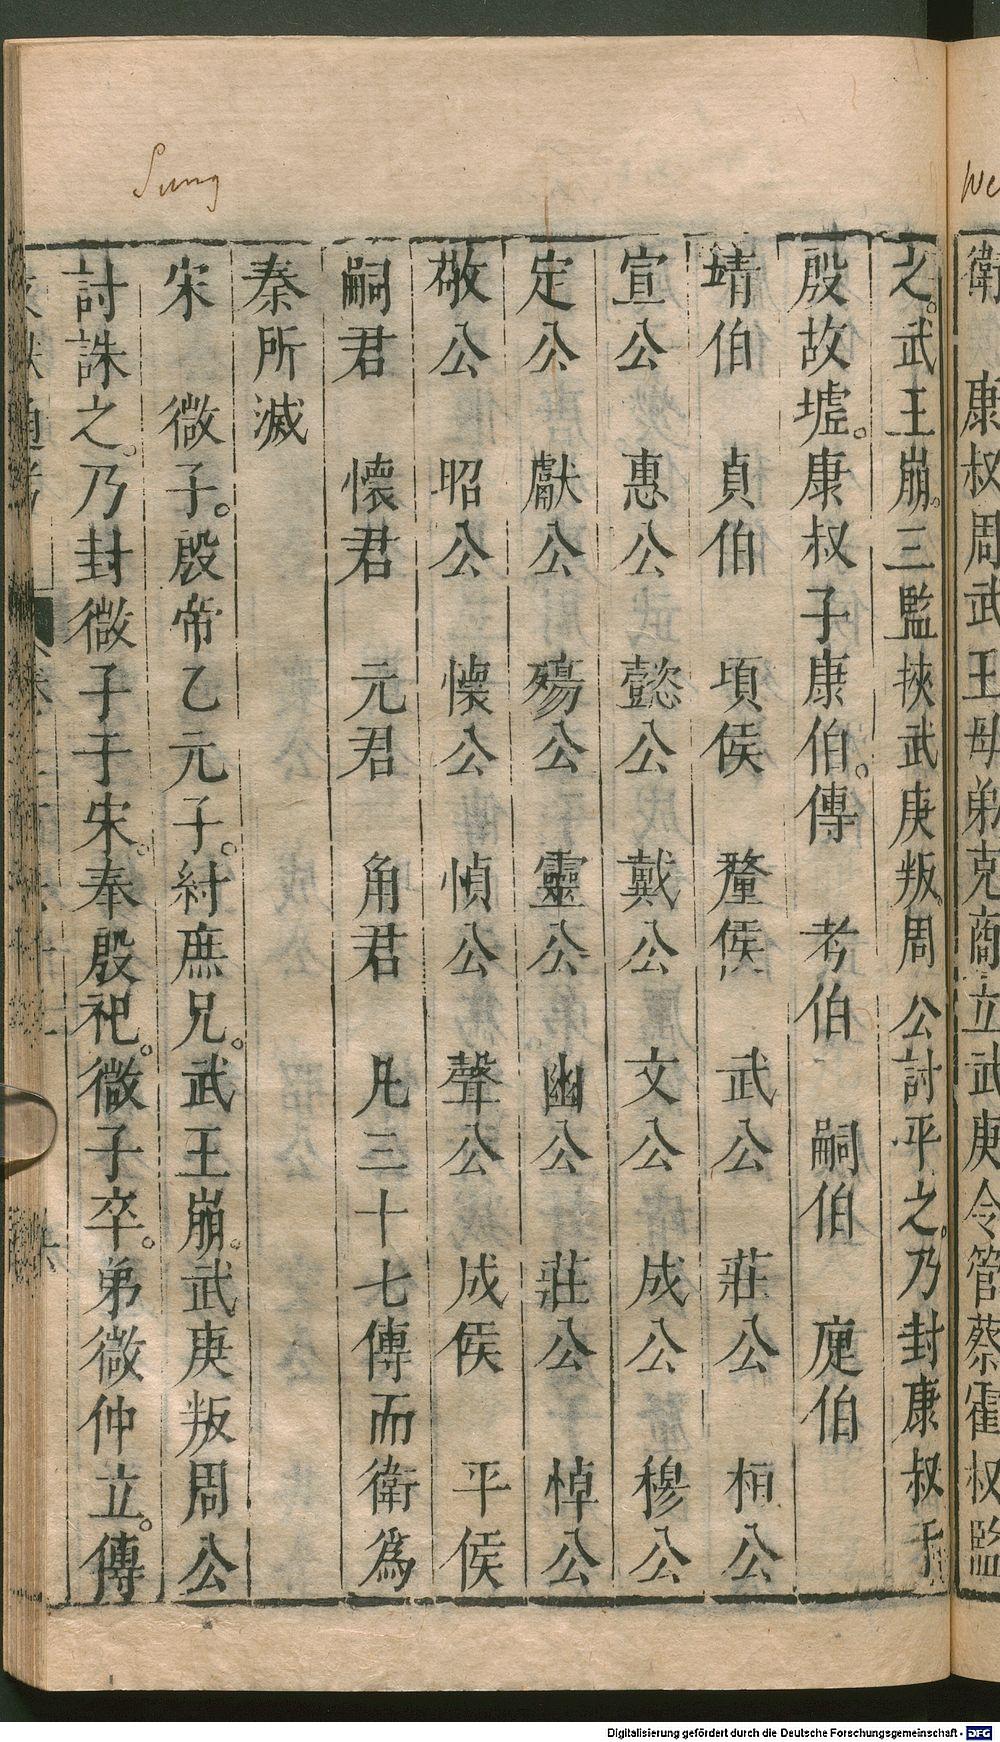 Sung
We
衛 康叔周武王母弟克商立武庚令管蔡霍叔監
之。武王崩。三監挾武庚叛。周公討平之。乃封康叔于
殷故墟。康叔子康伯。傳 考伯 嗣伯 庭伯
靖伯 貞伯 頃侯 釐侯 武公 莊公 桓公
宣公 惠公 懿公 戴公 文公 成公 穆公
定公 獻公 殤公 靈公 幽公 莊公 悼公
敬公 昭公 懷公 愼公 聲公 成侯 平侯
嗣君 懷君 元君 角君 凡三十七傳而衛爲
秦所滅
宋 微子。殷帝乙元子。紂庶兄。武王崩。武庚叛周公
討誅之。乃封微子于宋。奉殷祀。微子卒。弟微仲立。傳
Digitalisierung gefördert durch die Deutsche Forschungsgemeinschaft - DFG